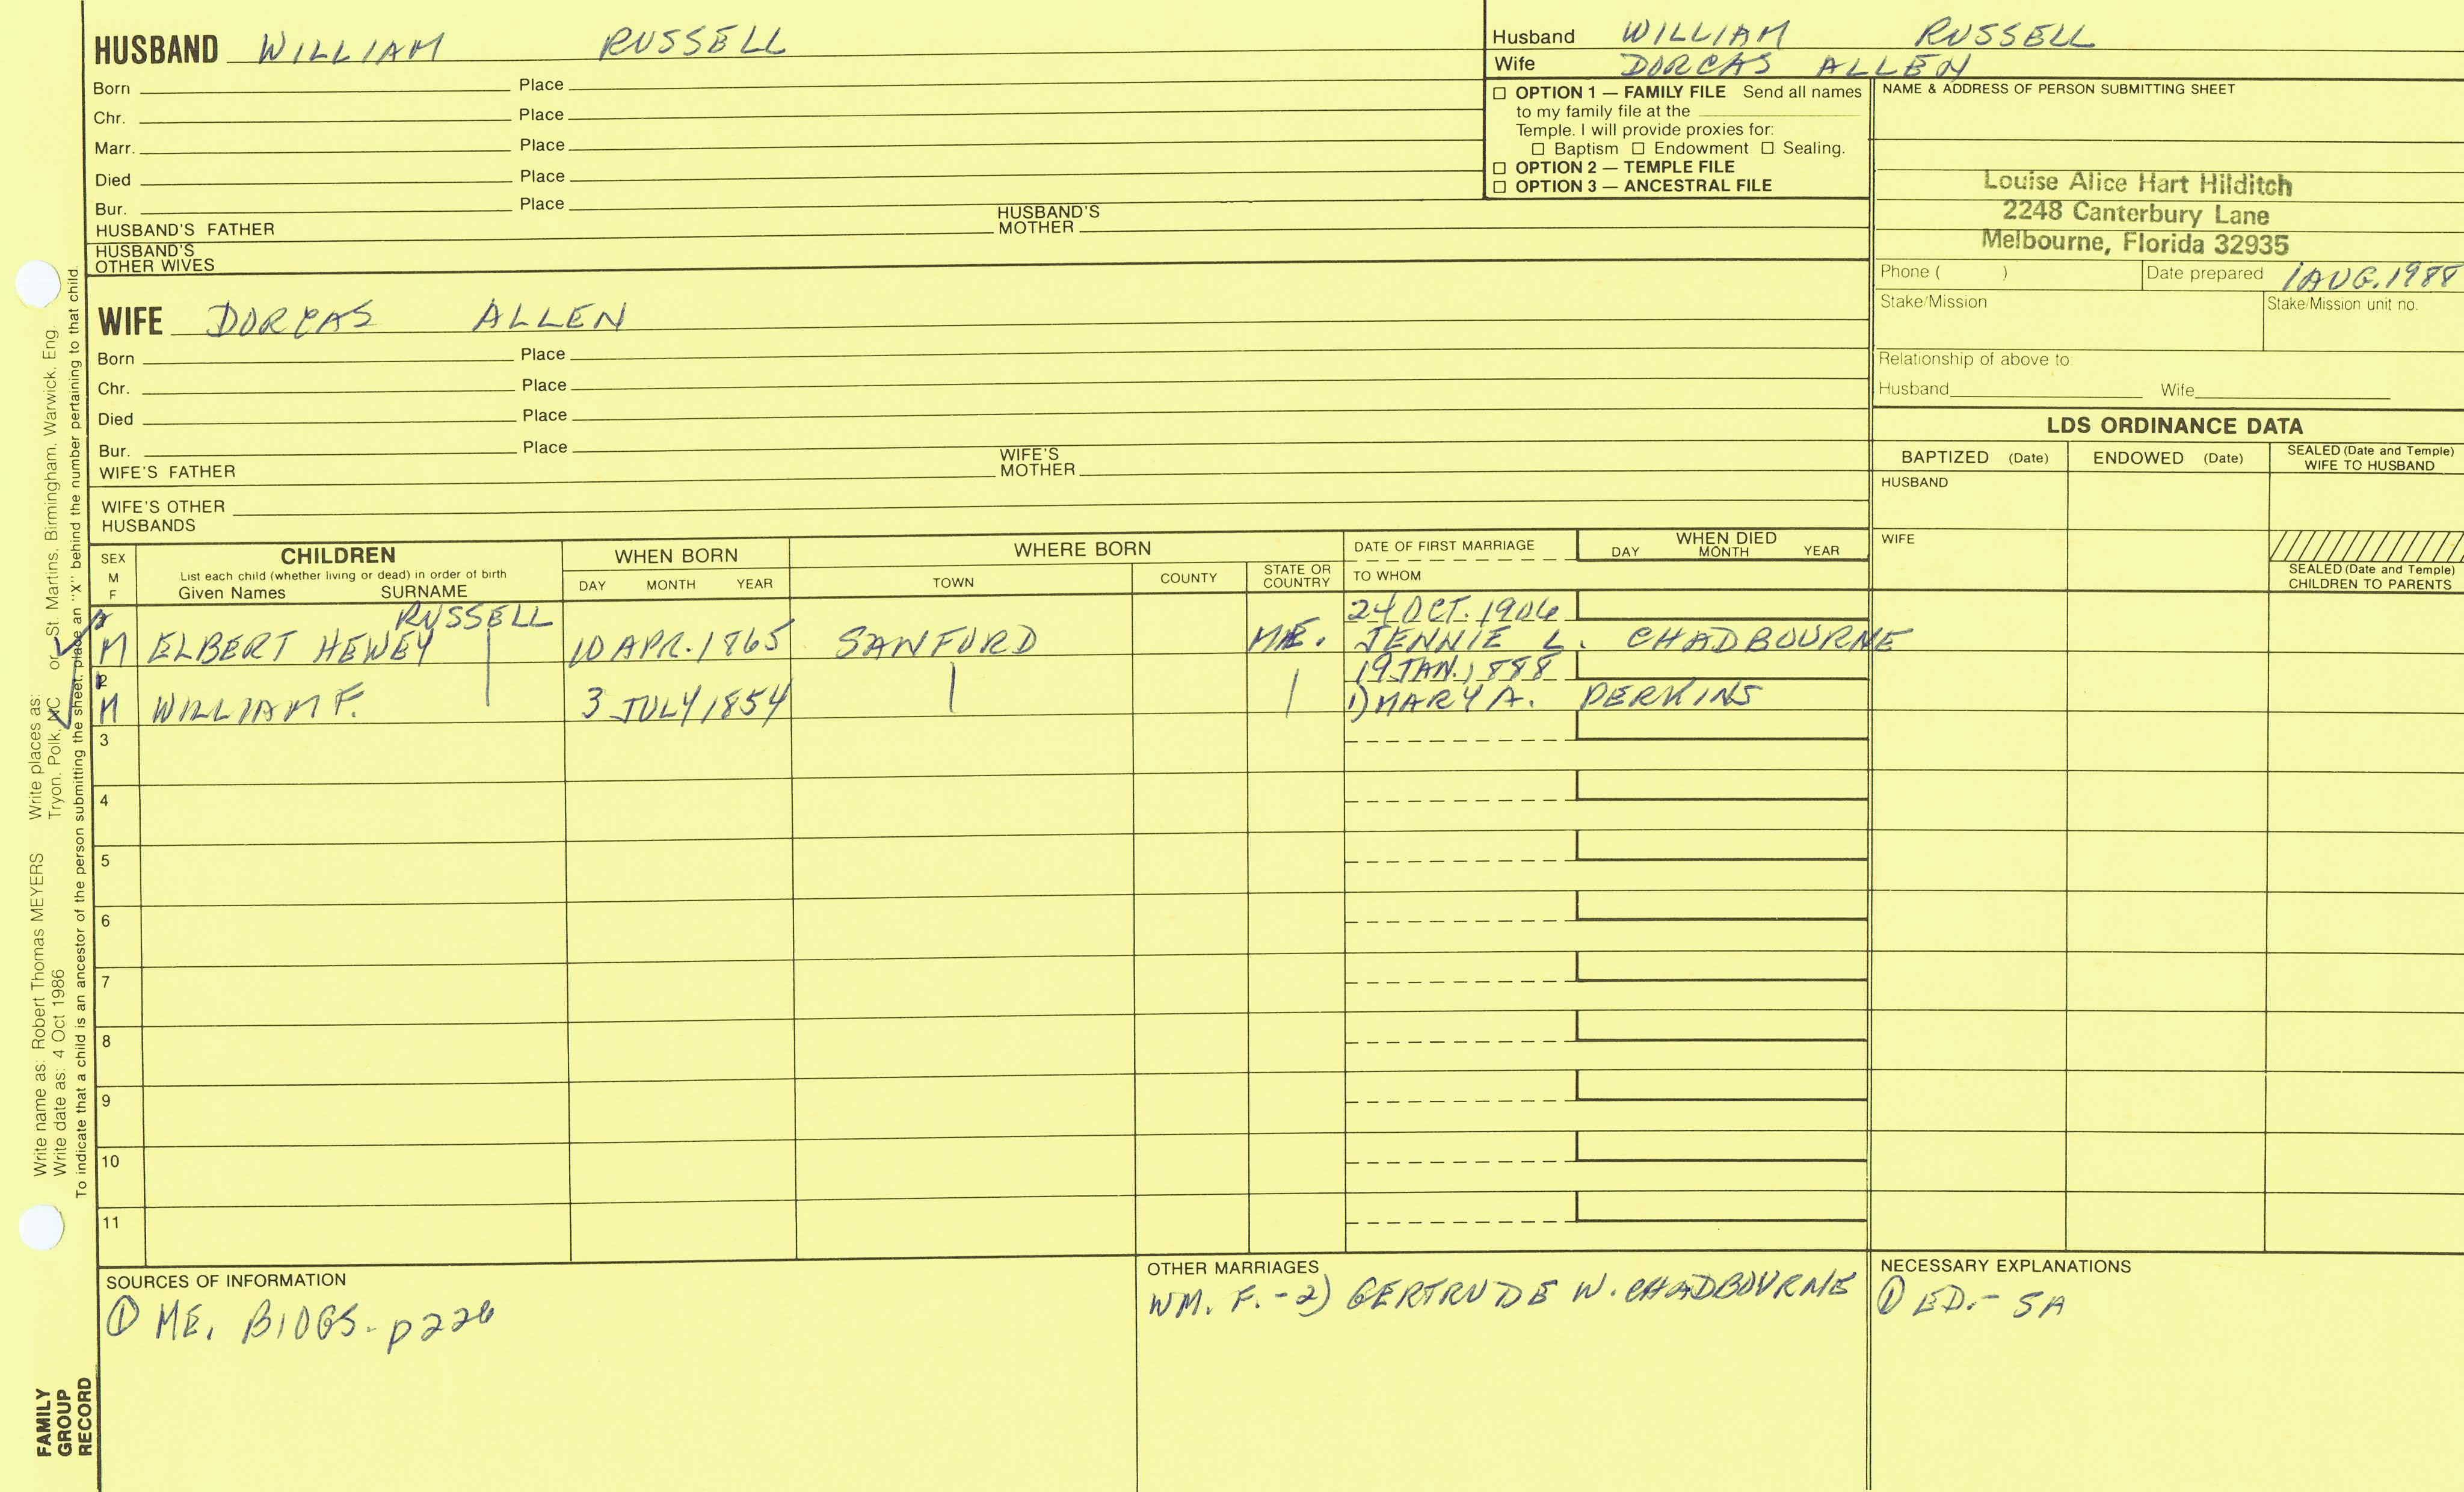 HUSBAND WILLIAM RUSSELL
Born Place
Chr. Place
Marr. Place
Died Place
Bur. Place
HUSBAND'S FATHER HUSBAND'S MOTHER
HUSBAND'S OTHER WIVES
WIFE DORCAS ALLEN
Born Place
Chr. Place
Died Place
Bur. Place
WIFE'S FATHER WIFE'S MOTHER
WIFE'S OTHER HUSBANDS
Husband WILLIAM RUSSELL
Wife DORCAS ALLEN
OPTION 1 — FAMILY FILE Send all names
to my family file at the
Temple. I will provide proxies for:
Baptism Endowment Sealing.
OPTION 2 — TEMPLE FILE
OPTION 3 — ANCESTRAL FILE
NAME & ADDRESS OF PERSON SUBMITTING SHEET
Louise Alice Hart Hilditch
2248 Canterbury Lane
Melbourne, Florida 32935
Phone ( ) Date prepared 1 AUG. 1988
Stake/Mission Stake/Mission unit no.
Relationship of above to:
Husband Wife
LDS ORDINANCE DATA
BAPTIZED (Date) ENDOWED (Date) SEALED (Date and Temple) WIFE TO HUSBAND
HUSBAND
WIFE
SEALED (Date and Temple)
CHILDREN TO PARENTS
SEX M F
CHILDREN
List each child (whether living or dead) in order of birth
Given Names SURNAME
WHEN BORN
DAY MONTH YEAR
WHERE BORN
TOWN COUNTY STATE OR COUNTRY
DATE OF FIRST MARRIAGE
TO WHOM
WHEN DIED
DAY MONTH YEAR
RUSSELL 24 OCT. 1906
M ELBERT HEWEY 10 APR. 1865 SANFORD ME. JENNIE L. CHADBOURNE
2 19 JAN. 1888
M WILLIAM F. 3 JULY 1854 1) MARY A. PERKINS
3
4
5
6
7
8
9
10
11
SOURCES OF INFORMATION
① ME. BIOGS. - p 226
OTHER MARRIAGES
WM. F. - 2) GERTRUDE W. CHADBOURNE
NECESSARY EXPLANATIONS
① ED. - SA
Write name as: Robert Thomas MEYERS Write places as:
Write date as: 4 Oct 1986 Tryon, Polk, NC or St. Martins, Birmingham, Warwick, Eng.
To indicate that a child is an ancestor of the person submitting the sheet, place an "X" behind the number pertaining to that child.
FAMILY
GROUP
RECORD